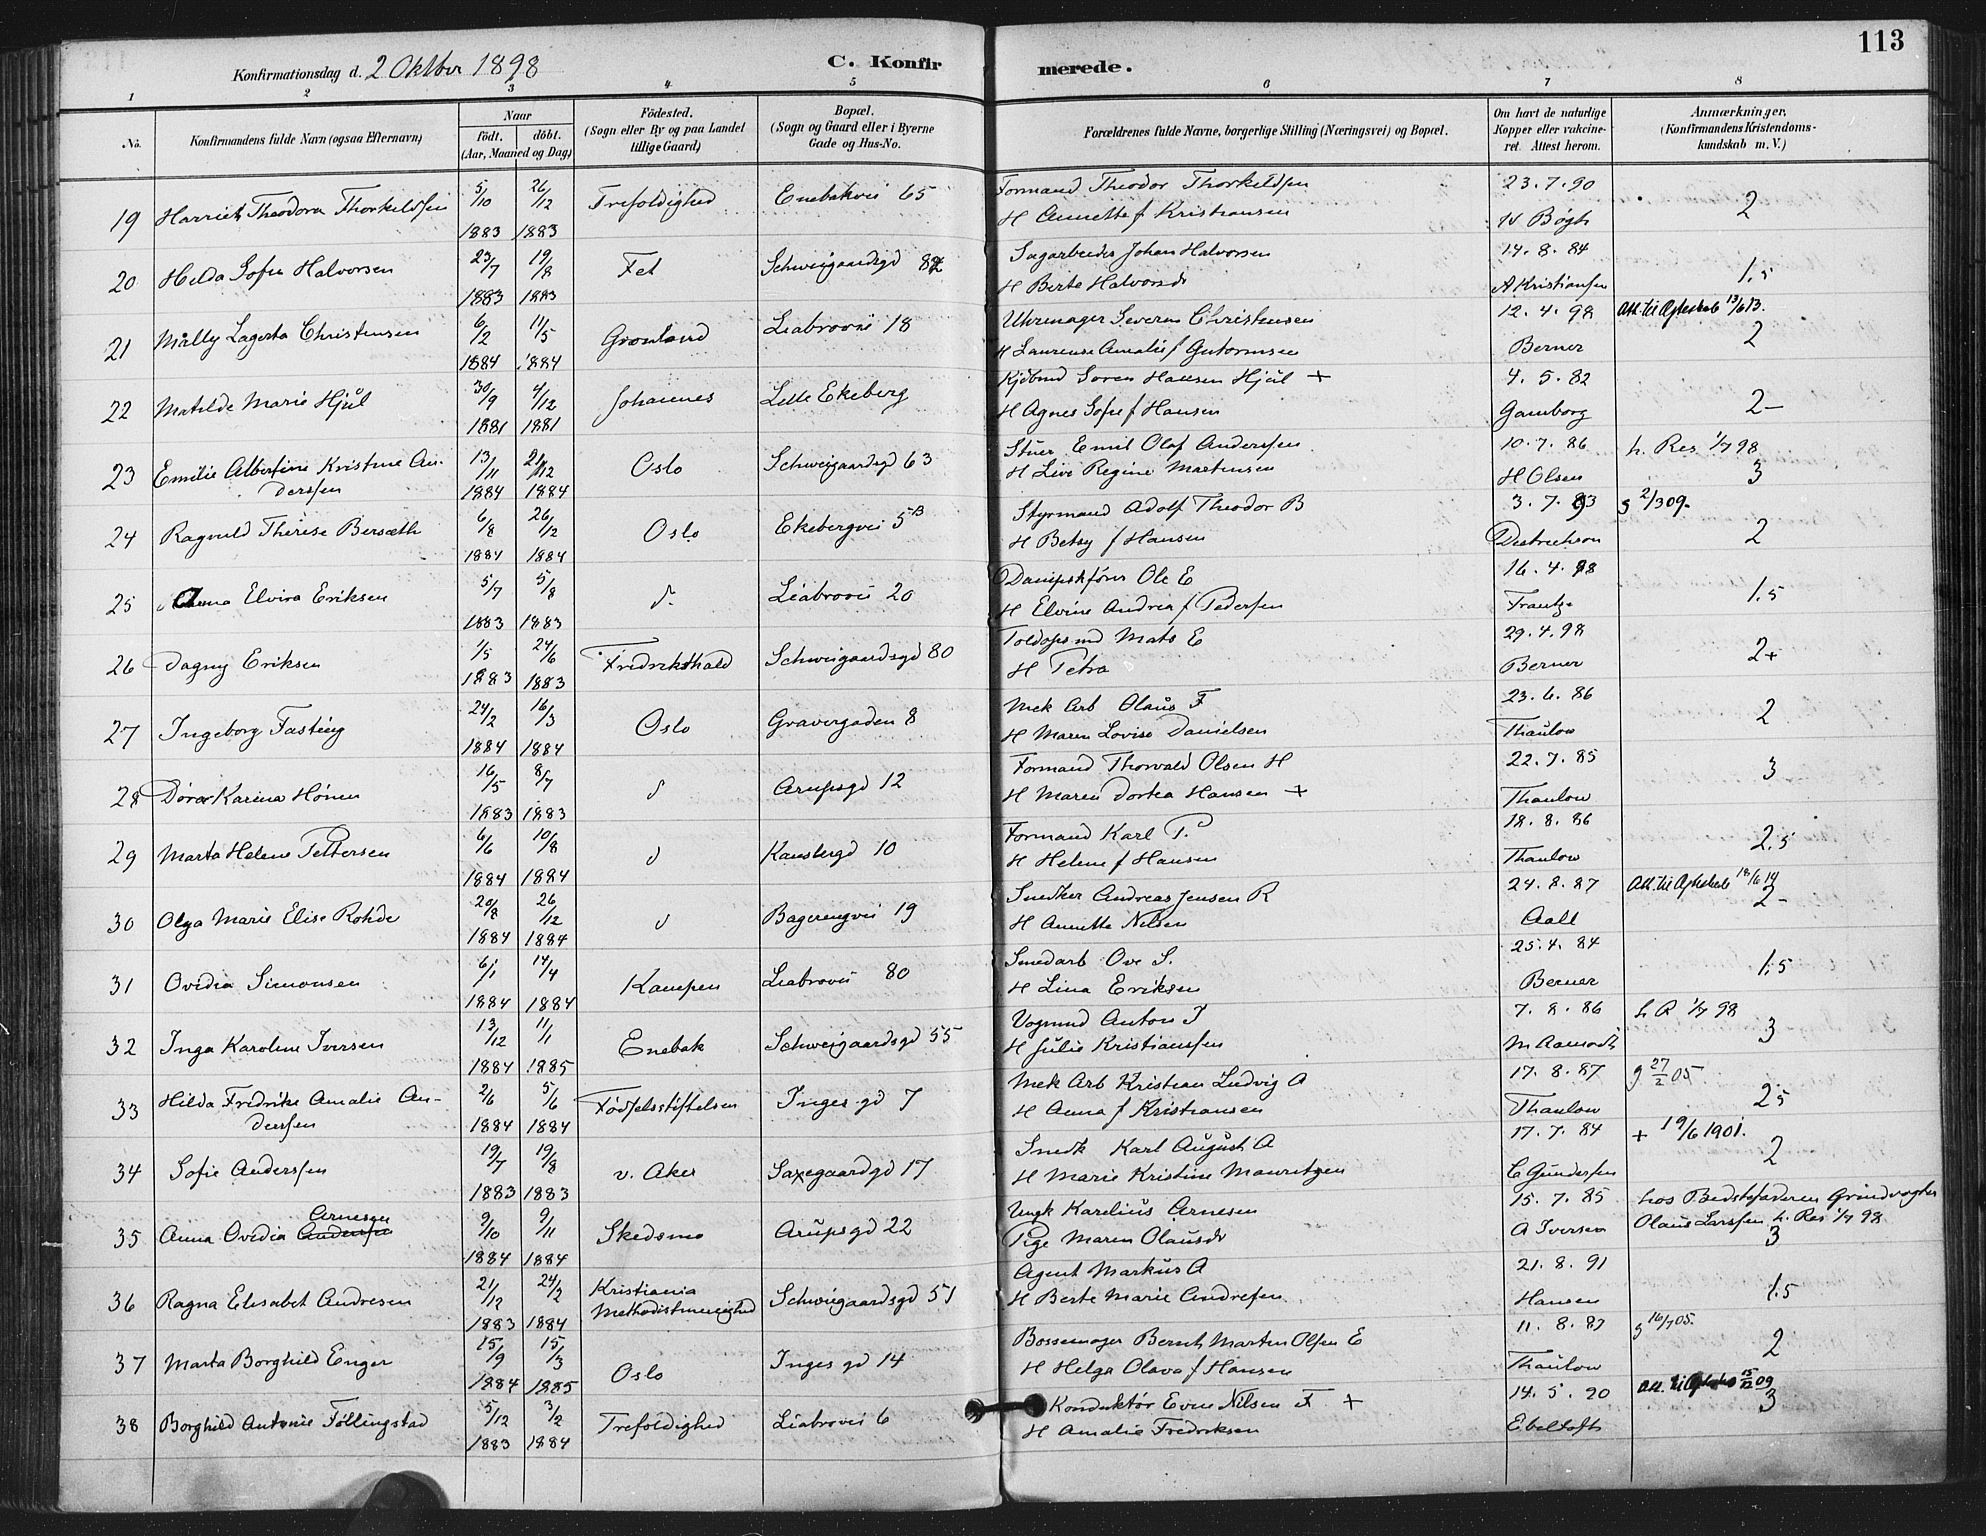 113
Konfirmationsdag d. 2 Oktber 1898
C. Konfirmerede.
1 2 3 4 5 6 7 8
No.
Konfirmandens fulde Navn (ogsaa Efternavn)
Naar
født. døbt.
(Aar, Maaned og Dag)
Fødested.
(Sogn eller By og paa Landet
tillige Gaard)
Bopæl.
(Sogn og Gaard eller i Byerne
Gade og Hus-No.
Forældrenes fulde Navne, borgerlige Stilling (Næringsvei) og Bopæl.
Om havt de naturlige
Kopper eller vakcine-
ret. Attest herom.
Anmærkninger.
(Konfirmandens Kristendoms-
kundskab m. V.)
19 Harriet Theodora Thorkildsen 5/10 1883 26/12 1883 Trefoldighed Enebakvei 65 Formand Theodor Thorkildsen 23.7.90 2
H Annette f Kristiansen Bøgh
20 Hilda Sofie Halvorsen 23/7 1883 19/8 1883 Fet Schweigaardsgd 82 Sagarbeider Johan Halvorsen 14.8.84 1.5
H Berte Halvorsdr A Kristiansen
21 Mally Lagerta Christensen 6/2 1884 11/5 1884 Grønland Liabrovei 18 Uhrmager Severin Christensen 12.4.98 Att. til Ægteskab 13/6 13. 2
H Laurense Amalie f Gutormsen Berner
22 Matilde Marie Hjul 30/9 1881 4/12 1881 Johannes Lille Ekeberg Kjøbmd Søren Hansen Hjul + 4.5.82 2-
H Agnes Sofie f Hansen Gamborg
23 Emilie Albertine Kristine An-
derssen 13/11 1884 21/12 1884 Oslo Schweigaardsgd 63 Stuer Emil Olaf Anderssen 10.7.86 h. Res 1/7 98 3
H Live Regine Martensen H Olsen
24 Ragnild Therese Bersæth 6/8 1884 26/12 1884 Oslo Ekebergvei 5B Styrmand Adolf Theodor B 3.7.93 g 2/3 09. 2
H Betsy f Hansen Dietrichson
25 Anna Elvira Eriksen 5/7 1883 5/8 1883 d. Liabrovei 20 Dampskfører Ole E 16.4.98 1.5
H Elvine Andrea f Pedersen Frantze
26 Dagny Eriksen 1/5 1883 24/6 1883 Fredrikshald Schweigaardsgd 80 Toldopsmd Mats E 29.4.98 2+
H Petra Berner
27 Ingeborg Fasting 24/2 1884 16/3 1884 Oslo Gravergaden 8 Mek Arb Olaus F 23.6.86 2
H Maren Lovise Danielsen Thaulow
28 Dora Karina Hønen 16/5 1883 8/7 1883 d Arupsgd 12 Formand Thorvald Olsen H 22.7.85 3
H Maren Dortea Hansen + Thaulow
29 Marta Helene Pettersen 6/6 1884 10/8 1884 d Kanslergd 10 Formand Karl P. 18.8.86 2.5
H Helene f Hansen Thaulow
30 Olga Marie Elise Rohde 20/8 1884 26/12 1884 d Bagerengvei 19 Snedker Andreas Jensen R 24.8.87 Att. til Ægteskab 18/6 14 2-
H Annette Nilsen Aall
31 Ovidia Simonsen 6/1 1884 14/4 1884 Kampen Liabrovei 80 Smedarb Ove S. 25.4.84 1.5
H Lina Eriksen Berner
32 Inga Karoline Iversen 13/12 1884 11/1 1885 Enebak Schweigaardsgd 55 Vognmd Anton I 7.8.86 h R 1/7 98 3
H Julie Kristianssen M Aamodt
33 Hilda Fredrike Amalie An-
derssen 2/6 1884 5/6 1884 Fødselsstiftelsen Inges gd 7 Mek Arb Kristian Ludvig A 17.8.87 g 27/2 05. 2.5
H Anna f Kristiansen Thaulow
34 Sofie Anderssen 19/7 1883 19/8 1883 v. Aker Saxegaardgd 17 Snedk Karl August A 17.7.84 + 19/6 1901. 2
H Marie Kristine Mauritzen C Gundersen
35 Anna Ovidia Anderssen Arnesen 9/10 1884 9/11 1884 Skedsmo Arupsgd 22 Ungk Karelius Arnesen 15.7.85 hos Bedstefaderen Grindvogter
Pige Maren Olausdr A Iversen Olaus Larssen h. Res 1/7 98 3
36 Ragna Elisabet Andresen 21/12 1883 24/2 1884 Kristiania
Methodistmenighed Schweigaardsgd 51 Agent Markus A 21.8.91 1.5
H Berte Marie Andresen Hansen
37 Marta Borghild Enger 15/9 1884 15/3 1885 Oslo Inges gd 14 Bossemager Bernt Martin Olsen E 11.8.87 g 16/7 05. 2
H Helga Olava f Hansen Thaulow
38 Borghild Antonie Føllingstad 5/12 1883 3/2 1884 Trefoldighed Liabrovei 6 Konduktør Even Nilsen F + 14.5.90 Att. til Ægteskab 15/12 09 3
H Amalie Fredriksen Ebeltoft